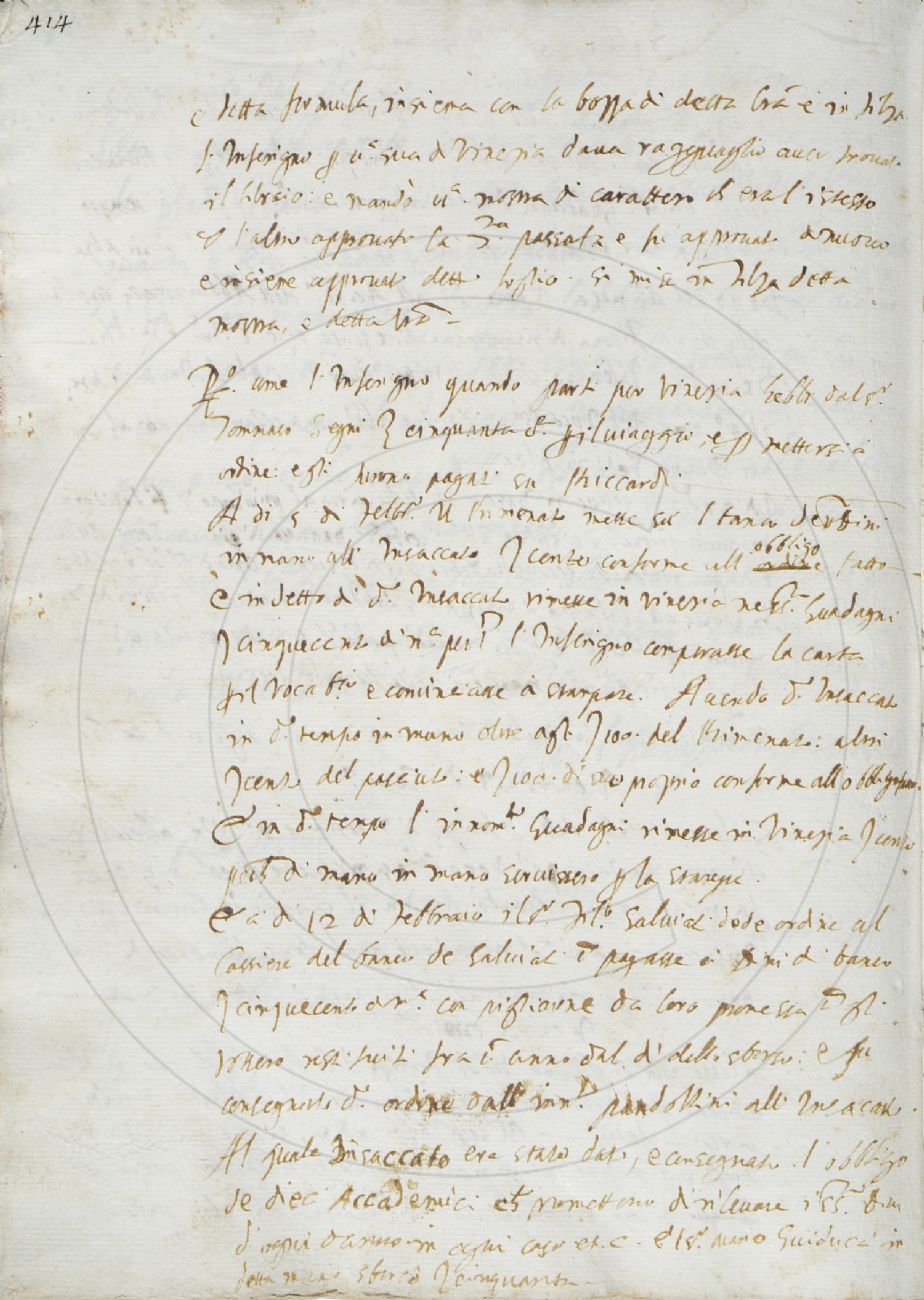 414
e detta formula, insieme con la bozza di detta lrã è in filza
l'Inferigno p una sua di Vinezia dava ragguaglio aver trovat
il libraio: e mandò una mostra di carattere ch era l'istesso
l'altro approvato la passata e fu approvat di nuovo
e insieme approvat dett foglio. si mise in filza detta
mostra, e detta lrã –
come l'Inferigno quando partì per Vinezia hebbe dal s.r
Tommaso Segni cinquanta p il viaggio, e p mettersi a
ordine: e gli furono pagati su Riccardi
A di 5 di Febb.o il Rimenato messe su l banco
in mano all' Insaccato cento conforme all obbligo fatto
E in detto dì d.o Insaccato rimesse in Vinezia ne Guadagni
cinquecento di n.a l'Inferigno comperasse la carta
p il Vocab.rio e cominciasse a stampare. Avendo d.o Insaccat
in d.o tempo in mano oltre agli 100. del Rimenato: altri
cento del pasciuto: e 100. di suo proprio conforme all obbligo
E in d.o tempo l'innom.to Guadagni rimesse in Vinezia cento
di mano in mano servissero p la stampa.
E a di 12 di Febbraio il s.r Fil.o Salviati dede ordine al
Cassiere del banco de Salviati pagasse a di banco
cinquecento di n.a con pigliarne da loro promessa gli
restituiti fra anno dal dì dello sborso: e fu
consegnato d.o ordine dall' Pandolfini all' Insaccato.
Al quale Insaccato era stato dato, e consegnato l'obbligo
de dieci Accademici promettono di rilevare
d'ogni danno in ogni caso et.c. E'l s.r Mario Guiducci in
detta mano sborsò cinquanta –